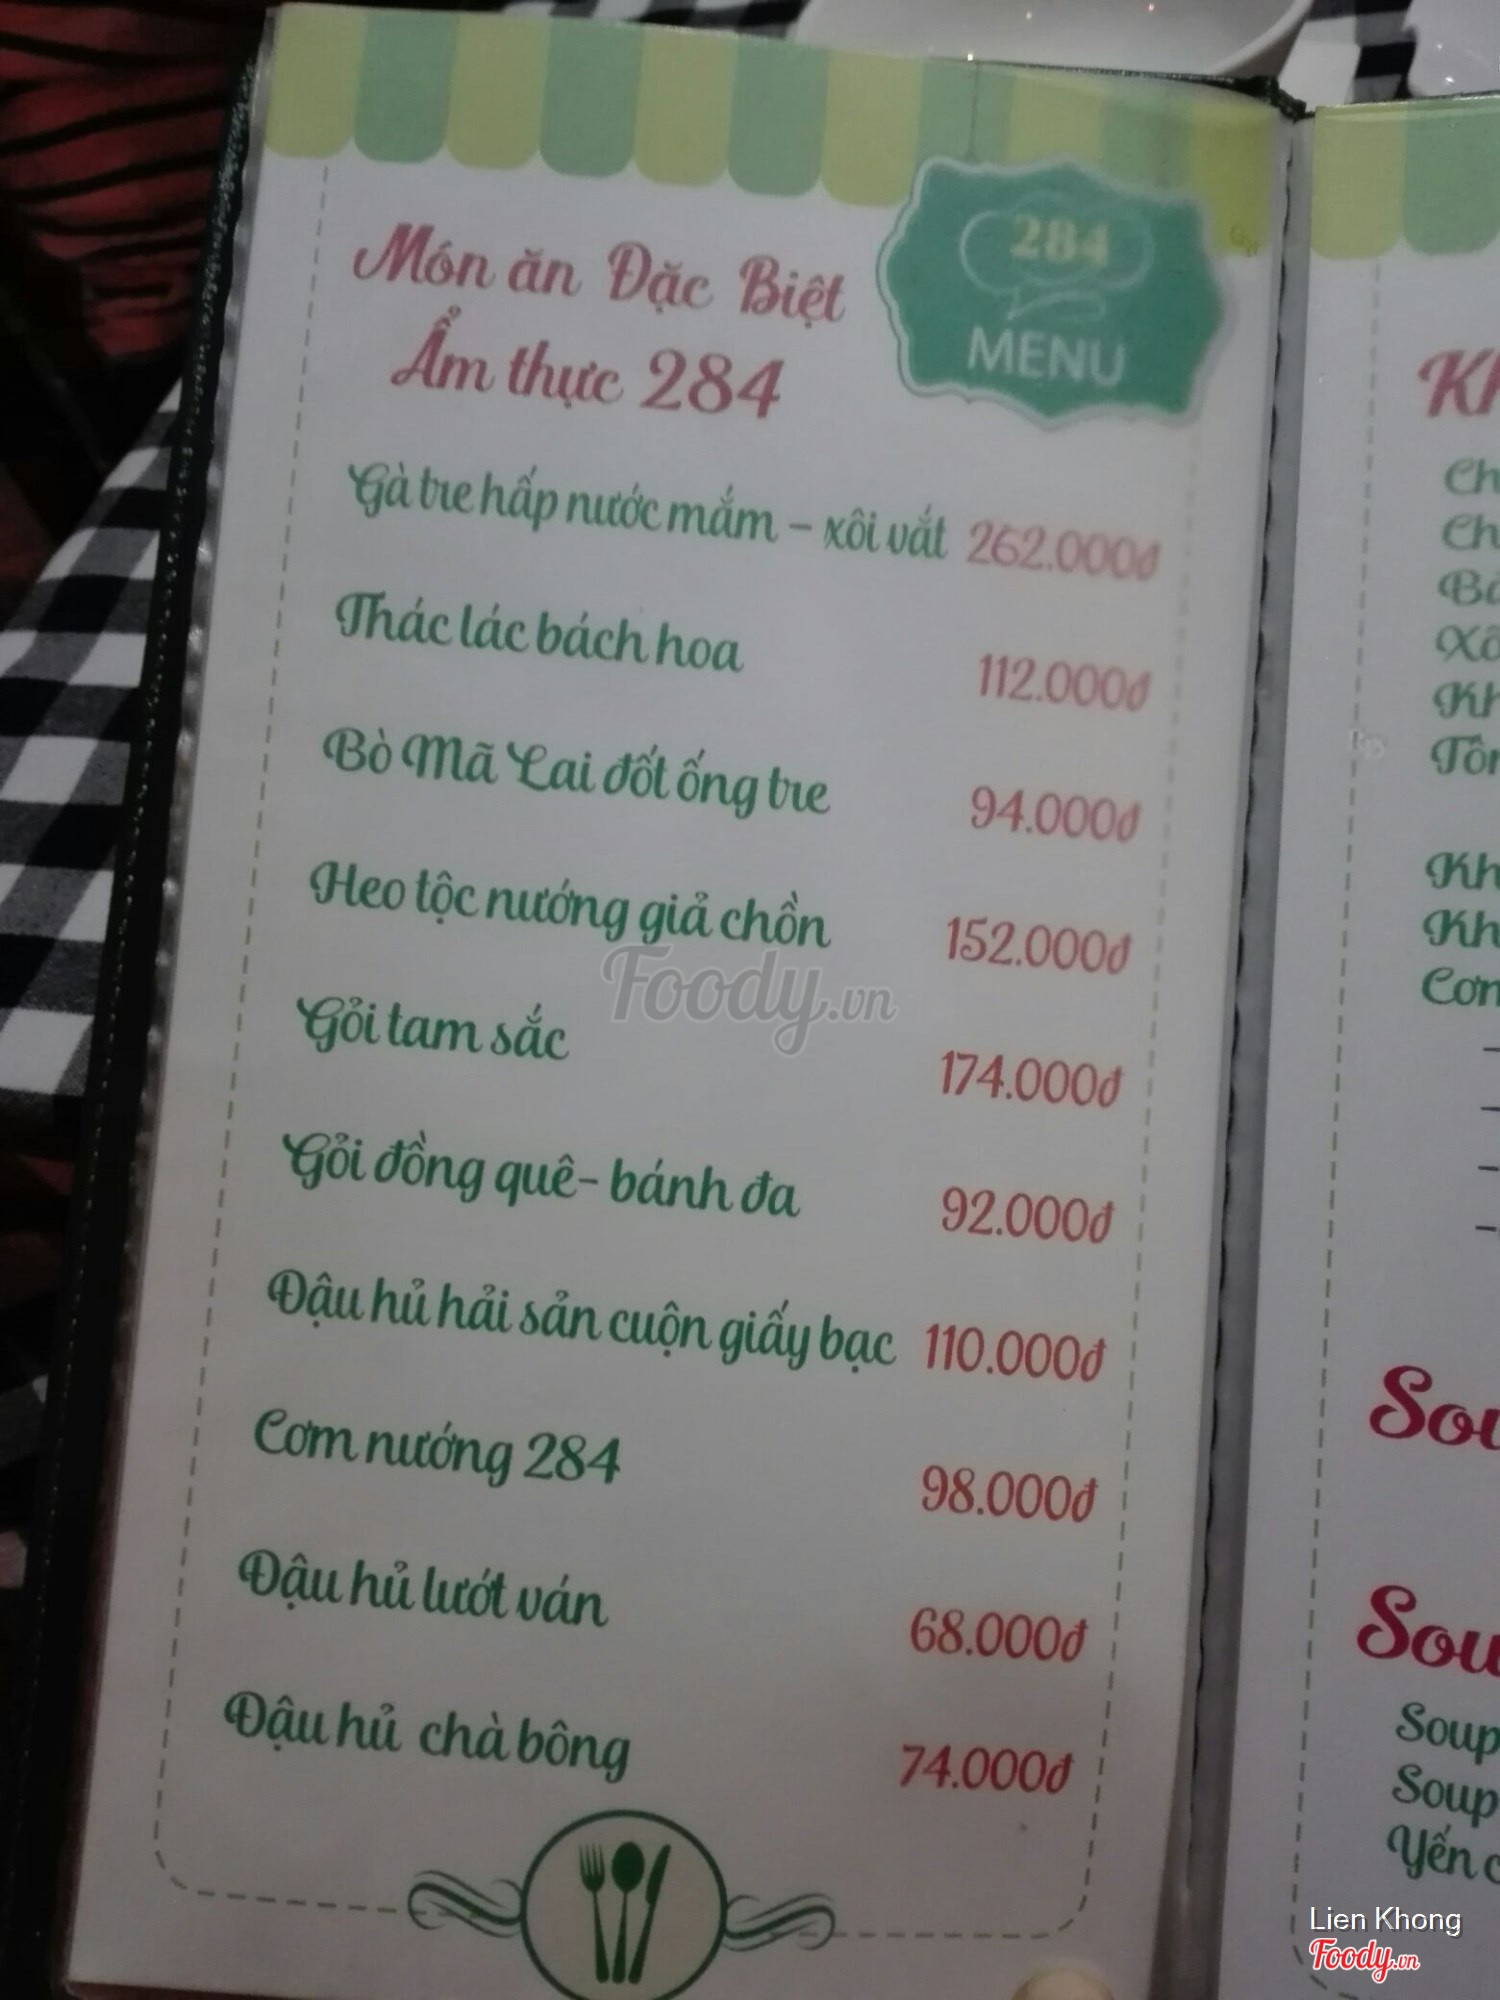 284
MENU
Món ăn Đặc Biệt
Ẩm thực 284
Gà tre hấp nước mắm – xôi vắt 262.000đ
Thác lác bách hoa 112.000đ
Bò Mã Lai đốt ống tre 94.000đ
Heo tộc nướng giả chồn 152.000đ
Gỏi tam sắc 174.000đ
Gỏi đồng quê- bánh đa 92.000đ
Đậu hủ hải sản cuộn giấy bạc 110.000đ
Cơm nướng 284 98.000đ
Đậu hủ lướt ván 68.000đ
Đậu hủ chà bông 74.000đ
Foody.vn
Soup
Soup
Yến
Lien Khong
Foody.vn